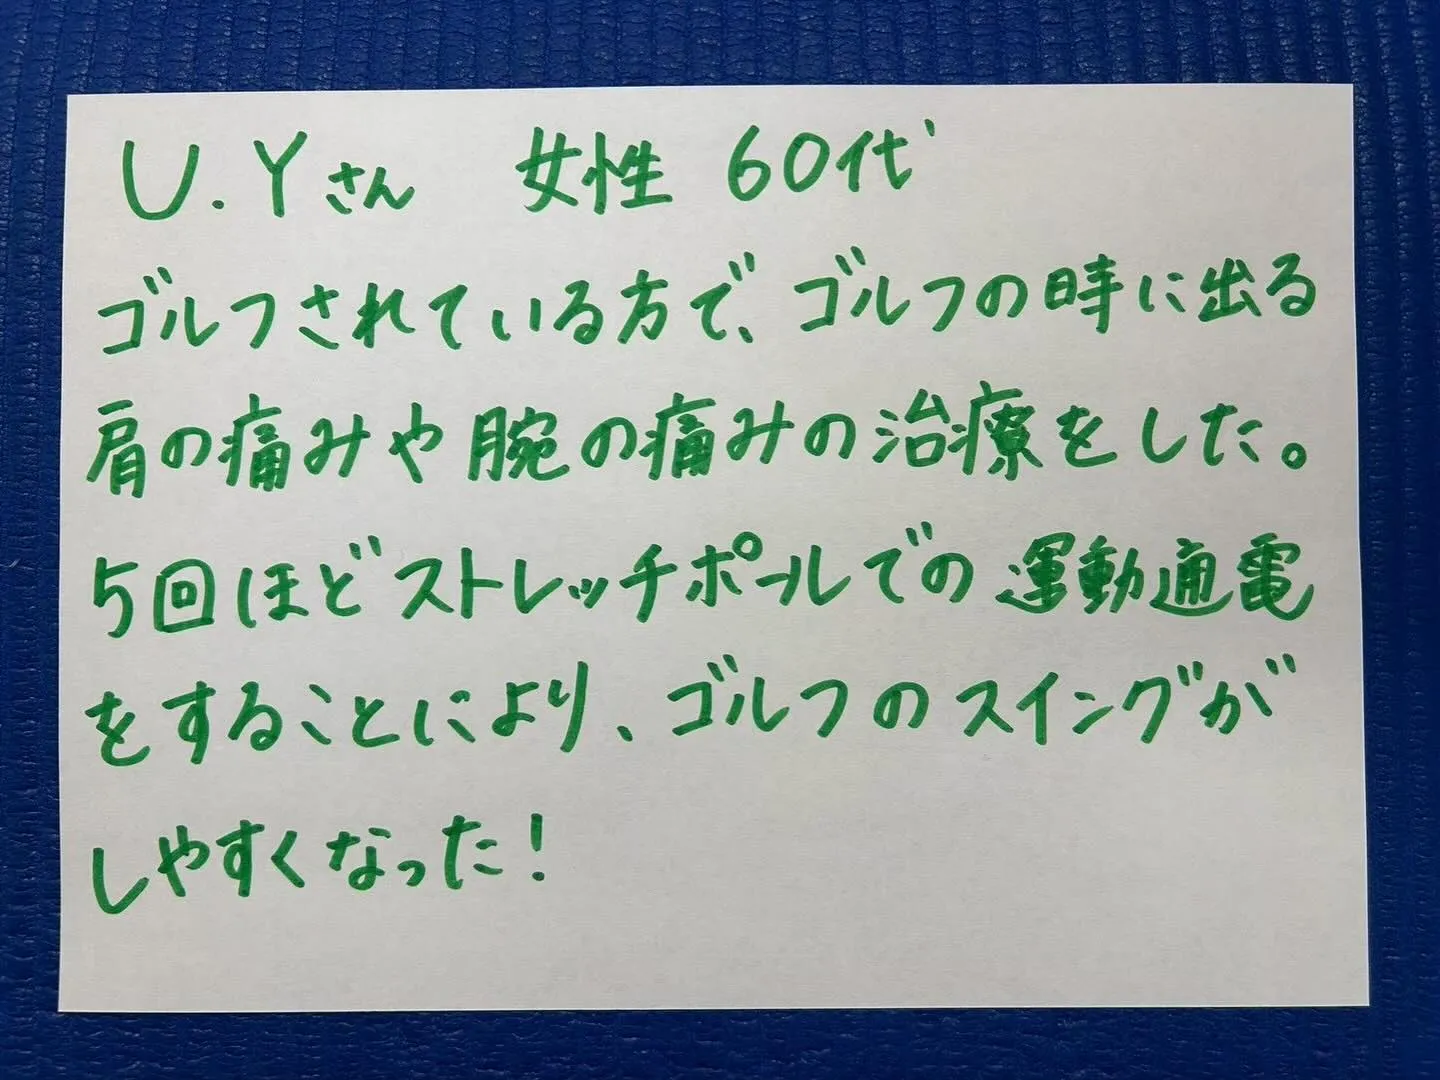 U.Yさん 女性 60代
ゴルフされている方で、ゴルフの時に出る
肩の痛みや腕の痛みの治療をした。
5回ほどストレッチポールでの運動通電
をすることにより、ゴルフのスイングが
しやすくなった!